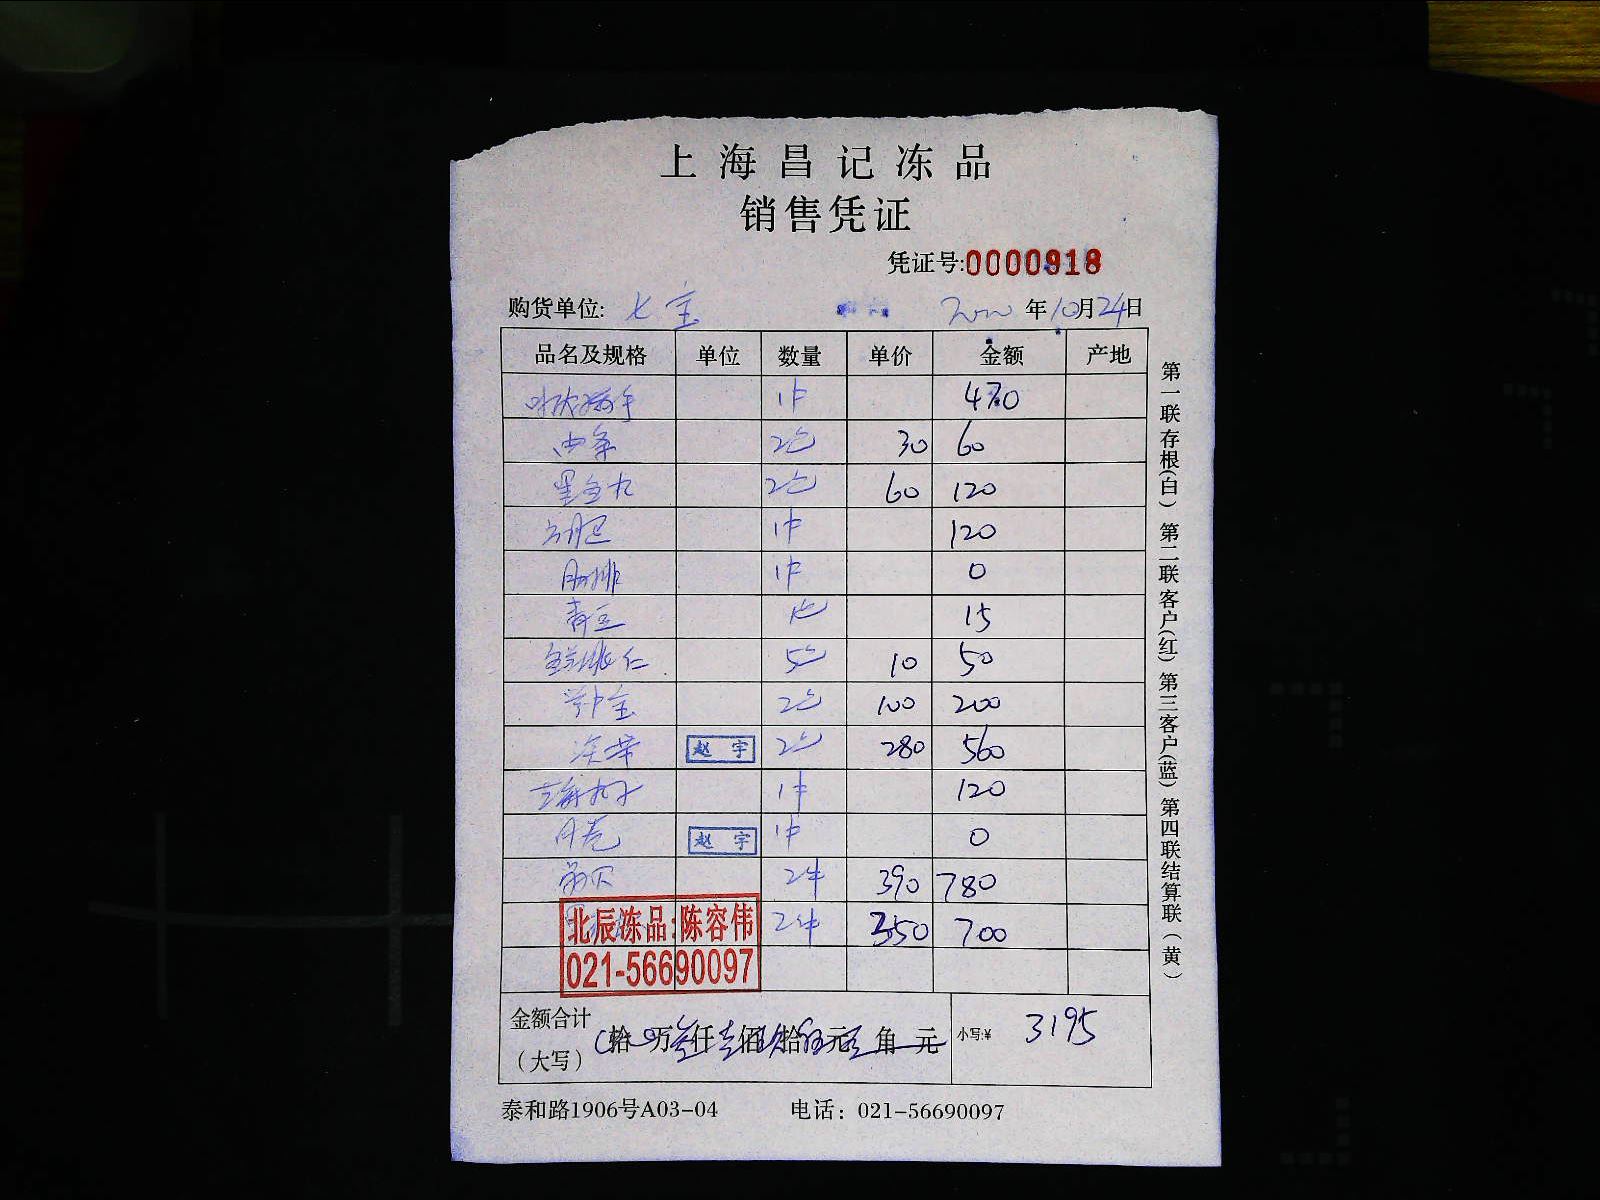 上海昌记冻品
销售凭证
凭证号:0000918
购货单位: 七宝 年10月24日
品名及规格 单位 数量 单价 金额 产地
1件 470
2包 30 60
2包 60 120
1件 120
肋排 1件 0
青豆 1包 15
仁 5包 10 50
2包 100 200
赵宇 2包 280 560
1件 120
赵宇 1件 0
2件 390 780
2件 350 700
北辰冻品:陈容伟
021-56690097
金额合计
(大写) 拾 万叁仟壹佰玖拾伍元 角 元 小写:¥ 3195
泰和路1906号A03-04 电话：021-56690097
第一联存根(白) 第二联客户(红) 第三客户(蓝) 第四联结算联(黄)